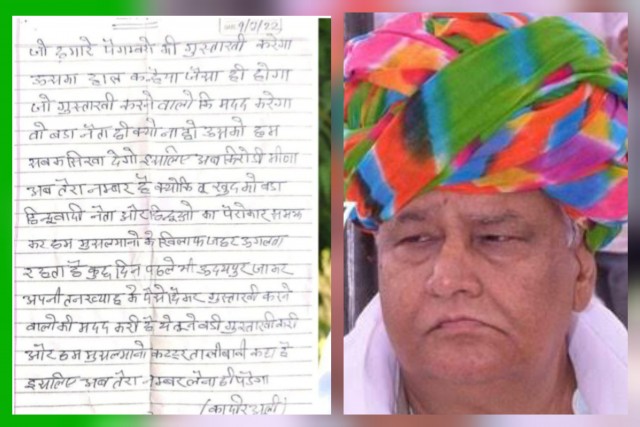 जो हमारे पैगम्बरो की गुस्ताखी करेगा
उसका हाल कन्हैया जैसा ही होगा
जो गुस्ताखी करने वालो कि मदद करेगा
वो बडा नेता ही क्यो ना हो उसको हम
सबक सिखा देगे इसलिए अब किरोडी मीणा
अब तेरा नम्बर है क्योकि तु खुद को बडा
हिन्दुवादी नेता और हिन्दुओ का पैरोकार समझ
कर हम मुसलमानो के खिलाफ जहर उगलता
रहता है कुछ दिन पहले भी उदयपुर जाकर
अपनी तनख्वाह के पैसे देकर गुस्ताखी करने
वालो की मदद करी है ये तूने बडी गुस्ताखी करी
और हम मुसलमानो कट्टर तालीबानी कहा है
इसलिए अब तेरा नम्बर लेना ही पडेगा
(कादीर अली)